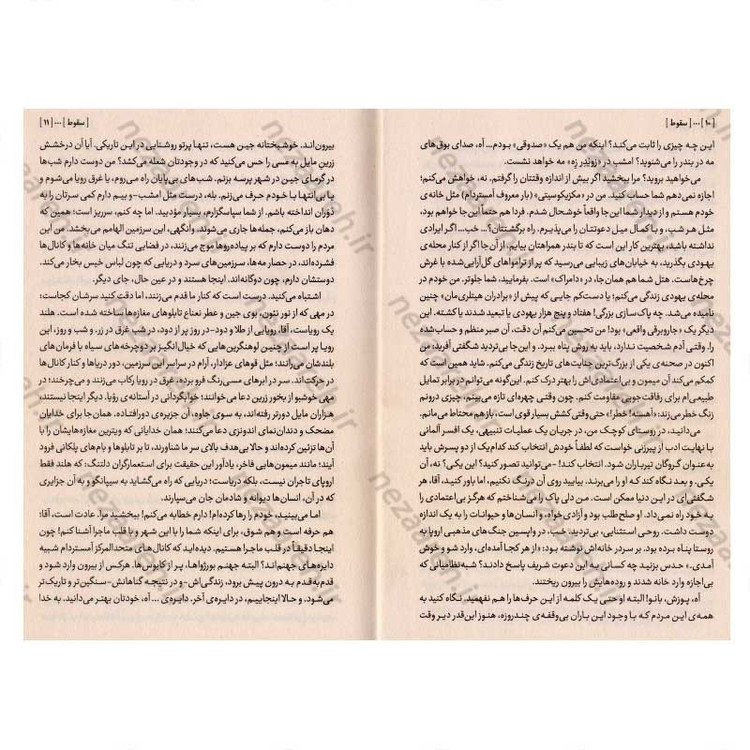 [ ۱۰ ] ... [ سقوط ]
این چه چیزی را ثابت می‌کند؟ اینکه من هم یک «صدوقی» بودم... آه، صدای بوق‌های
مه در بندر را می‌شنوید؟ امشب در «زویدر زه» مه خواهد نشست.
می‌خواهید بروید؟ مرا ببخشید اگر بیش از اندازه وقتتان را گرفتم. نه، خواهش می‌کنم!
اجازه نمی‌دهم شما حساب کنید. من در «مکزیکوسیتی» (بار معروف آمستردام) مثل خانه‌ی
خودم هستم و از دیدار شما این جا واقعاً خوشحال شدم. فردا هم حتماً این جا خواهم بود،
مثل هر شب، و با کمال میل دعوتتان را می‌پذیرم. راه برگشتتان؟... خب... اگر ایرادی
نداشته باشید، بهترین کار این است که تا بندر همراهتان بیایم. از آن جا اگر از کنار محله‌ی
یهودی بگذرید، به خیابان‌های زیبایی می‌رسید که پر از ترامواهای گل‌آرایی‌شده با غرش
چرخ‌هاست. هتل شما هم همان جا، در «دامراک» است. بفرمایید، شما جلوتر. من در
محله‌ی یهودی زندگی می‌کنم؛ یا دست‌کم جایی که پیش از «برادران هیتلری‌مان» چنین
نامیده می‌شد. چه پاک‌سازی بزرگی! هفتاد و پنج هزار یهودی یا تبعید شدند یا کشته. این
دیگر یک «جاروبرقی واقعی» بود! من تحسین می‌کنم آن دقت، آن صبر منظم و حساب‌شده
را. وقتی آدم شخصیت ندارد، باید به روش پناه ببرد. و این جا بی‌تردید شگفتی آفرید؛ من
اکنون در صحنه‌ی یکی از بزرگ‌ترین جنایت‌های تاریخ زندگی می‌کنم. شاید همین است که
کمکم می‌کند آن میمون و بی‌اعتمادی‌اش را بهتر درک کنم. این‌گونه می‌توانم در برابر تمایل
طبیعی‌ام برای رفاقت‌جویی مقاومت کنم. وقتی چهره‌ای تازه می‌بینم، چیزی درونم
زنگ خطر می‌زند: «آهسته! خطر!» حتی وقتی کشش بسیار قوی است، باز هم محتاط می‌مانم.
می‌دانید، در روستای کوچک من، در جریان یک عملیات تنبیهی، یک افسر آلمانی
با نهایت ادب از پیرزنی خواست که لطفاً خودش انتخاب کند کدام یک از دو پسرش باید
به‌عنوان گروگان تیرباران شود. انتخاب کند! -می‌توانید تصور کنید؟ این یکی؟ نه، آن
یکی. و بعد نگاه کند که او را می‌برند. بیایید روی آن درنگ نکنیم، اما باور کنید، آقا، هر
شگفتی‌ای در این دنیا ممکن است. من دلی پاک را می‌شناختم که هرگز بی‌اعتمادی را
به خود راه نمی‌داد. او صلح‌طلب بود و آزادی‌خواه، و انسان‌ها و حیوانات را به یک اندازه
دوست داشت. روحی استثنایی، بی‌تردید. خب، در واپسین جنگ‌های مذهبی اروپا به
روستا پناه برده بود. بر سردر خانه‌اش نوشته بود: «از هر کجا آمده‌ای، وارد شو و خوش
آمدی.» حدس بزنید چه کسانی به این دعوت شریف پاسخ دادند؟ شبه‌نظامیانی که
بی‌اجازه وارد خانه شدند و روده‌هایش را بیرون ریختند.
آه، پوزش، بانو! البته او حتی یک کلمه از این حرف‌ها را هم نفهمید. نگاه کنید به
همه‌ی این مردم که با وجود این باران بی‌وقفه‌ی چندروزه، هنوز این‌قدر دیر وقت
[ سقوط ] ... [ ۱۱ ]
بیرون‌اند. خوشبختانه جین هست، تنها پرتو روشنایی در این تاریکی. آیا آن درخشش
زرین مایل به مسی را حس می‌کنید که در وجودتان شعله می‌کشد؟ من دوست دارم شب‌ها
در گرمای جین در شهر پرسه بزنم. شب‌های بی‌پایان راه می‌روم، یا غرق رویا می‌شوم و
یا بی‌انتها با خودم حرف می‌زنم. بله، درست مثل امشب-و بیم دارم کمی سرتان را به
دوران انداخته باشم. از شما سپاسگزارم، بسیار مؤدبید. اما چه کنم، سرریز است؛ همین که
دهان باز می‌کنم، جمله‌ها جاری می‌شوند. وانگهی، این سرزمین الهامم می‌بخشد. من این
مردم را دوست دارم که بر پیاده‌روها موج می‌زنند، در فضایی تنگ میان خانه‌ها و کانال‌ها
فشرده‌اند، در حصار مه‌ها، سرزمین‌های سرد و دریایی که چون لباس خیس بخار می‌کند.
دوستشان دارم، چون دوگانه‌اند. اینجا هستند و در عین حال، جای دیگر.
اشتباه می‌کنید. درست است که کنار ما قدم می‌زنند، اما دقت کنید سرشان کجاست؛
در مهی که از نور نئون، بوی جین و عطر نعناع تابلوهای مغازه‌ها ساخته شده است. هلند
یک رویاست، آقا، رویایی از طلا و دود-در روز پر از دود، در شب غرق در زر. و شب و روز، این
رویا پر است از چنین لوهنگرین‌هایی که خیال‌انگیز بر دوچرخه‌های سیاه با فرمان‌های
بلندشان می‌رانند؛ مثل قوهای عزادار، آرام در سراسر این سرزمین، دور دریاها و کنار کانال‌ها
در حرکت‌اند. سر در ابرهای مسی‌رنگ فرو برده، غرق در رویا رکاب می‌زنند و می‌چرخند؛ در
مهی خوشبو از بخور زرین دعا می‌خوانند؛ خوابگردانی در آستانه‌ی رؤیا. دیگر اینجا نیستند،
هزاران مایل دورتر رفته‌اند، به سوی جاوه، آن جزیره‌ی دورافتاده. همان جا برای خدایان
مضحک و دندان‌نمای اندونزی دعا می‌کنند؛ همان خدایانی که ویترین مغازه‌هایشان را با
آن‌ها تزئین کرده‌اند و حالا بی‌هدف بالای سر ما شناورند، تا بر تابلوها و بام‌های پلکانی فرود
آیند؛ مانند میمون‌هایی فاخر، یادآور این حقیقت برای استعمارگران دلتنگ؛ که هلند فقط
اروپای تاجران نیست، بلکه دریاست؛ دریایی که راه می‌گشاید به سیپانگو و به آن جزایری
که در آن، انسان‌ها دیوانه و شادمان جان می‌سپارند.
اما می‌بینید، خودم را رها کرده‌ام! دارم خطابه می‌کنم! ببخشید مرا. عادت است، آقا؛
هم حرفه است و هم شوق، برای اینکه شما را با این شهر و با قلب ماجرا آشنا کنم! چون
اینجا دقیقاً در قلب ماجرا هستیم. دیده‌اید که کانال‌های متحدالمرکز آمستردام شبیه
دایره‌های جهنم‌اند؟ البته جهنم بورژواها، پر از کابوس‌ها. هرکس از بیرون وارد شود و
قدم‌به‌قدم به درون پیش برود، زندگی‌اش-و در نتیجه گناهانش-سنگین‌تر و تاریک‌تر
می‌شود. و حالا اینجاییم، در دایره‌ی آخر. دایره‌ی ... آه، خودتان بهتر می‌دانید. به خدا
nezaareh.ir